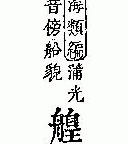 海類編蒲光
音傍船貌
艎